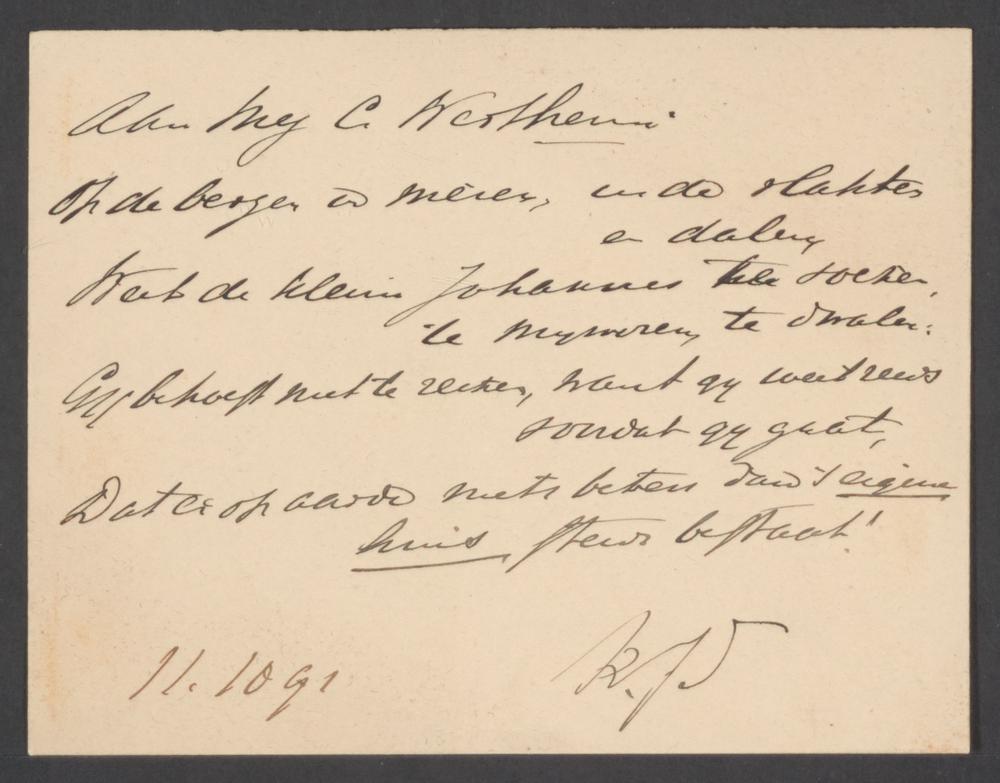 Aan Mej C. Wertheim.
Op de bergen en meren, in de vlakten
en dalen
Weet de kleine Johannes te soeken,
te mymeren, te dwalen.
Gy behoeft niet te zoeken, want gy weet reeds
voordat gy gaat,
Dat er op aarde niets beters dan 't eigene
huis steeds bestaat!
11. 10 91